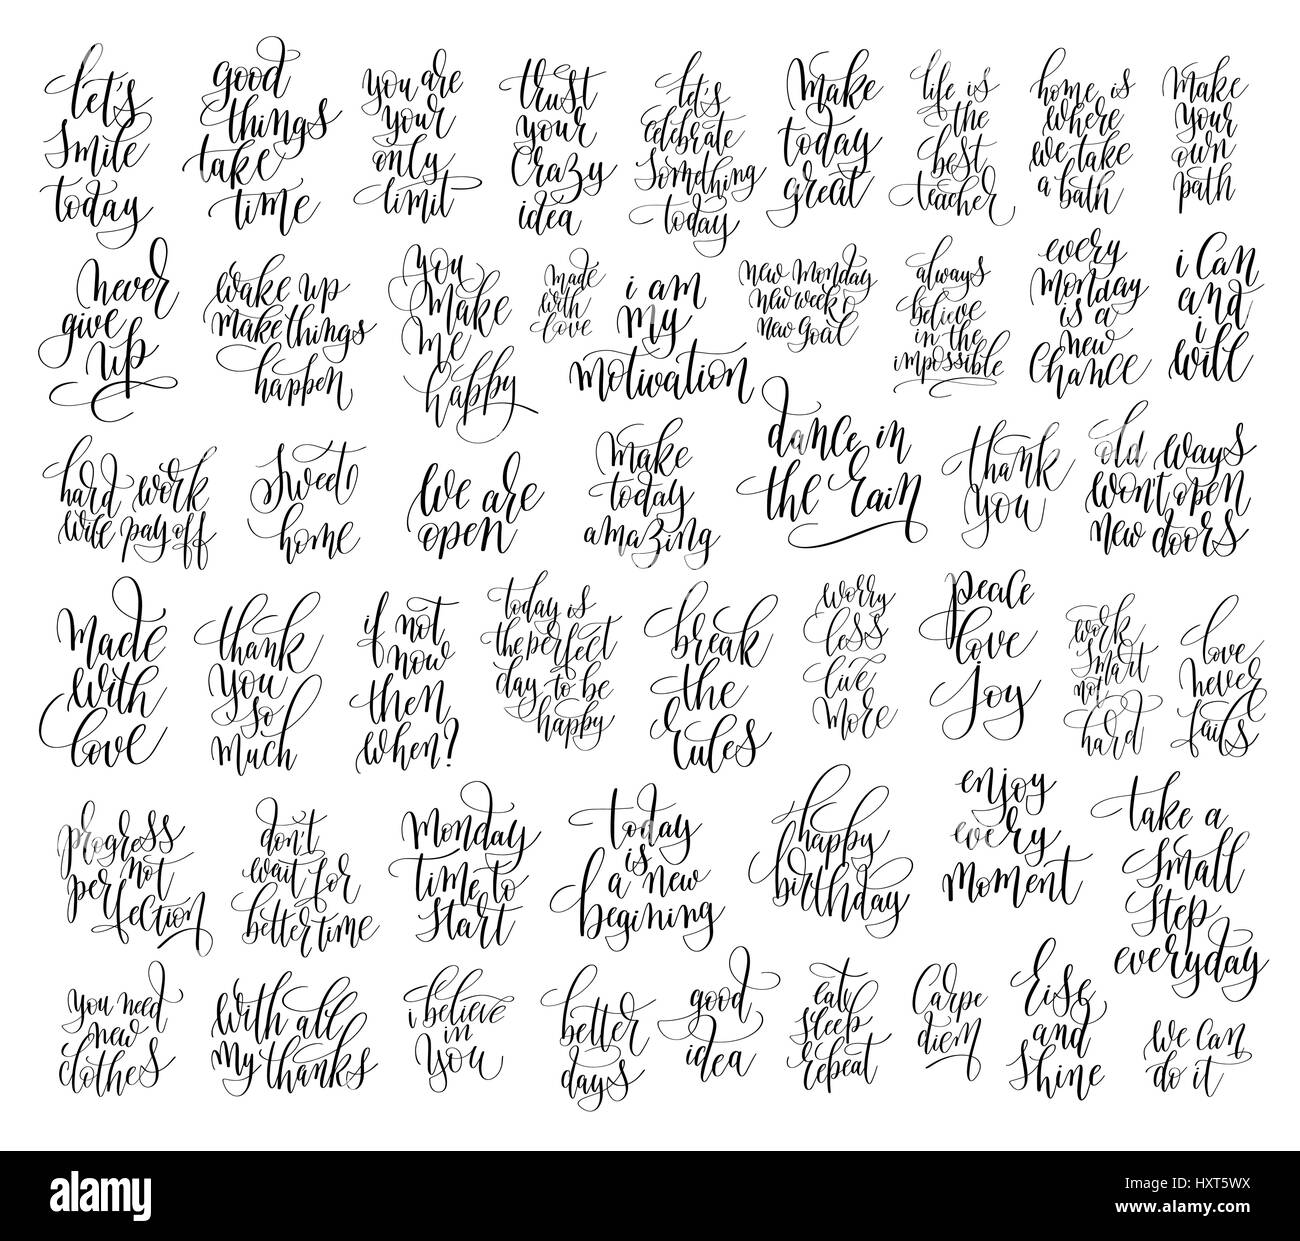 let's
smile
today
good
things
take
time
you are
your
only
limit
trust
your
crazy
idea
let's
celebrate
something
today
make
today
great
life is
the
best
teacher
home is
where
we take
a bath
make
your
own
path
never
give
up
wake up
make things
happen
you
make
me
happy
made
with
love
i am
my
motivation
new monday
new week
new goal
always
believe
in the
impossible
every
monday
is a
new
chance
i can
and
i
will
hard work
will pay off
sweet
home
we are
open
make
today
amazing
dance in
the rain
thank
you
old ways
won't open
new doors
made
with
love
thank
you
so
much
if not
now
then
when?
today is
the perfect
day to be
happy
break
the
rules
worry
less
live
more
peace
love
joy
work
smart
not
hard
love
never
fails
progress
not
perfection
don't
wait for
better time
monday
time to
start
today
is
a new
begining
happy
birthday
enjoy
every
moment
take a
small
step
everyday
you need
new
clothes
with all
my thanks
i believe
in
you
better
days
good
idea
eat
sleep
repeat
carpe
diem
rise
and
shine
we can
do it
alamy stock photo
alamy
Image ID: HXT5WX
www.alamy.com